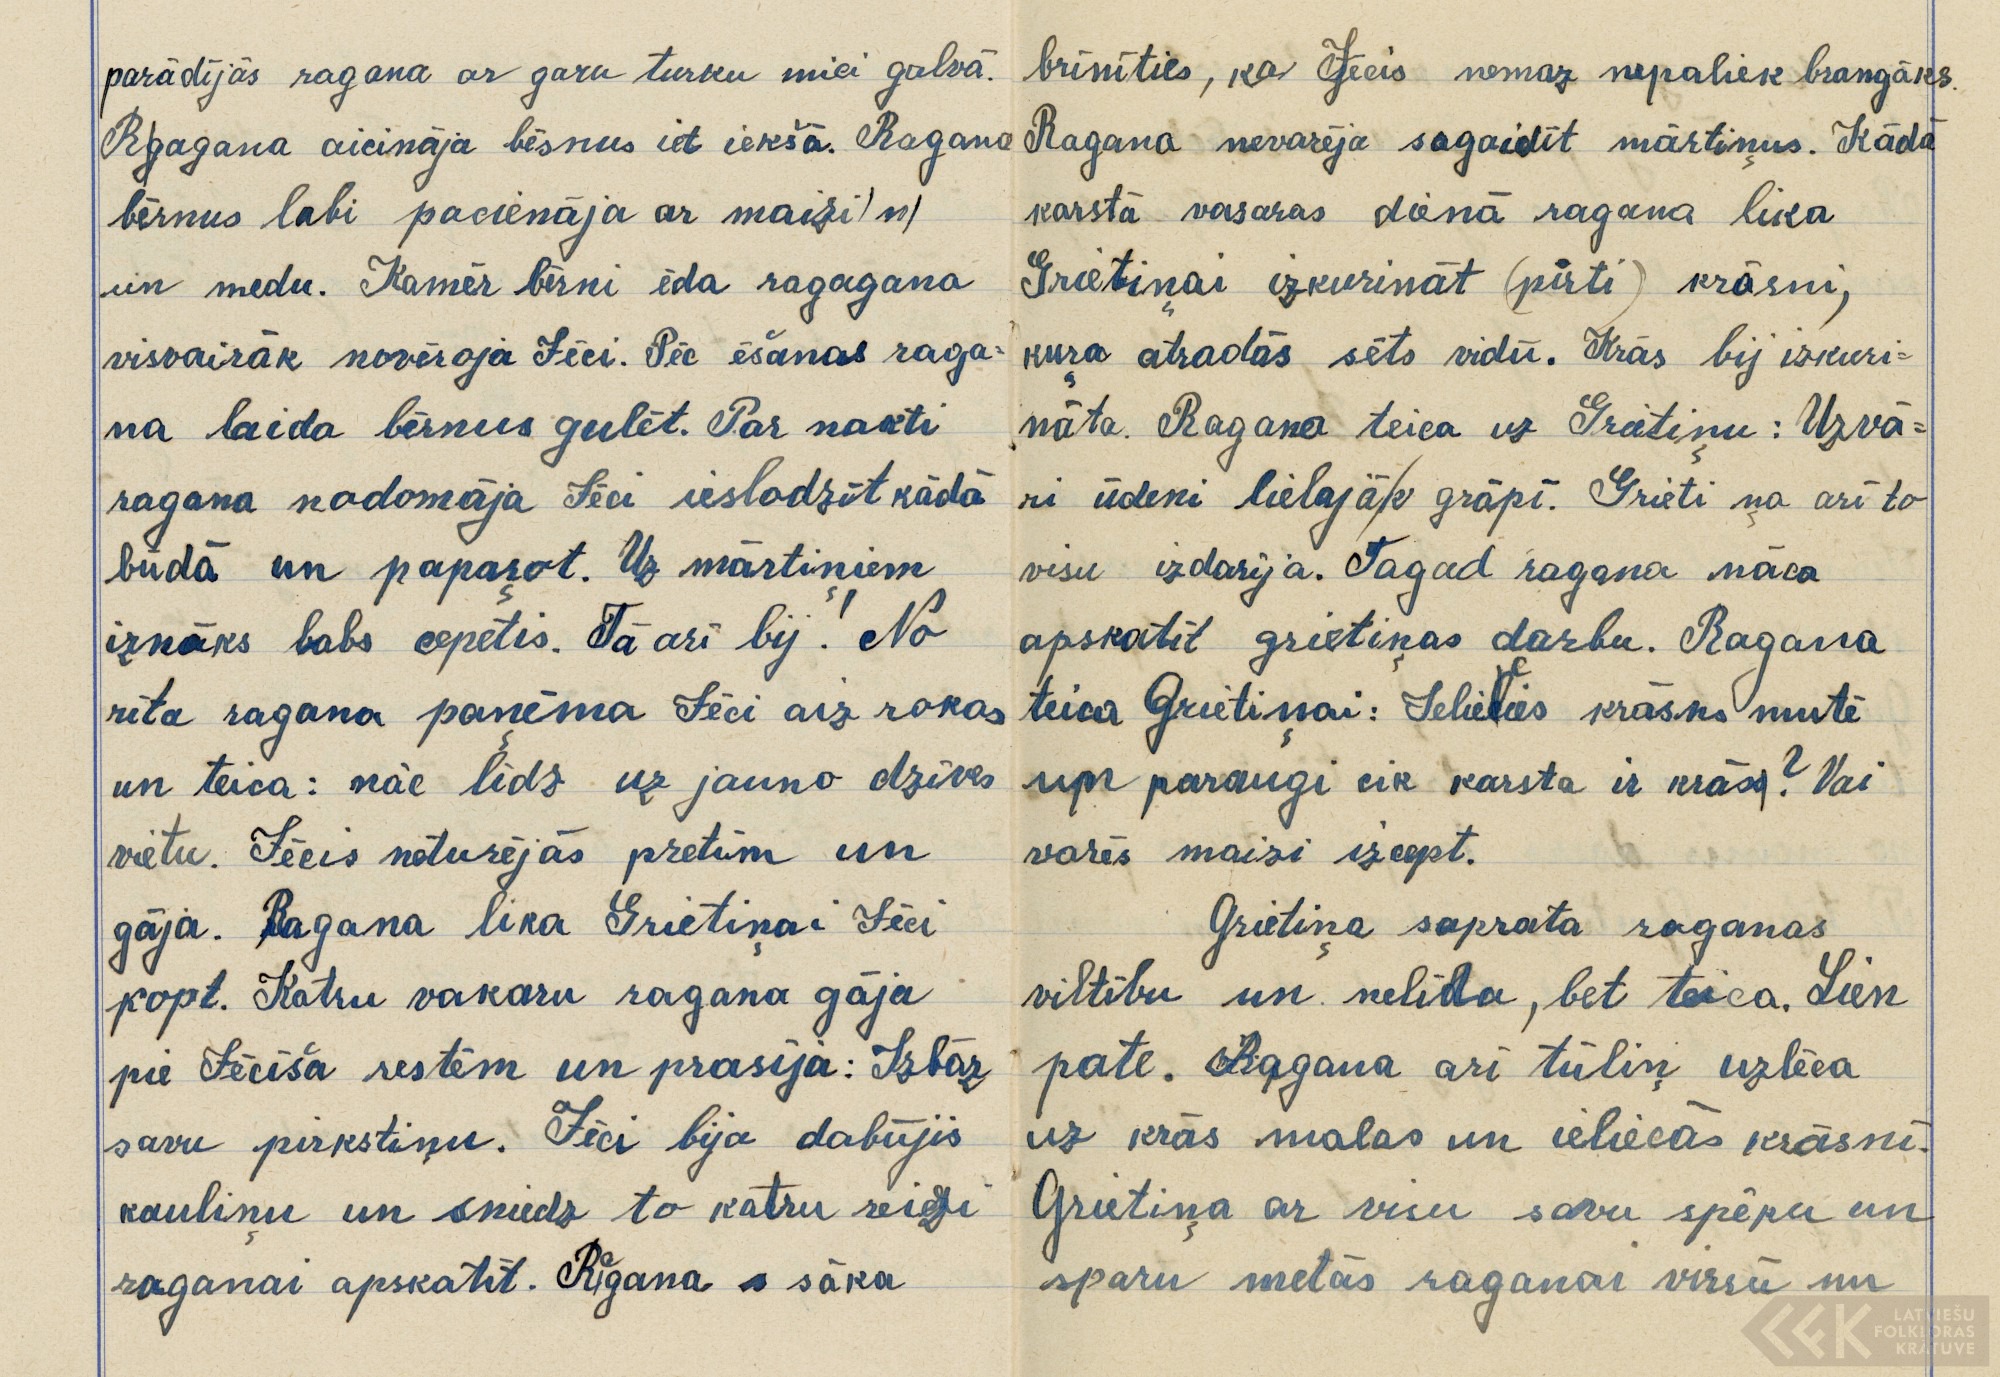 parādījās ragana ar garu turku mici galvā.
Ragana aicināja bēsnus iet iekšā. Ragana
bērnus labi pacienāja ar maizi/n/
un medu. Kamēr bērni ēda ragagana
visvairāk novēroja Ječi. Pēc ēšanas raga=
na laida bērnus gulēt. Par nakti
ragana nodomāja Ječi ieslodzīt kādā
būdā un papaŗot. Uz mārtiņiem
iznāks labs cepetis. Tā arī bij! No
rīta ragana paņēma Ječi aiz rokas
un teica: nāc līdz uz jauno dzīves
vietu. Ječis neturējās pretim un
gāja. Ragana lika Grietiņai Ječi
kopt. Katru vakaru ragana gāja
pie Ječiša restēm un prasīja: Izbāz
savu pirkstiņu. Ječi bija dabūjis
kauliņu un sniedz to katru reizi
raganai apskatīt. Ragana s sāka
brīnīties, ka Ječis nemaz nepaliek brangāks.
Ragana nevarēja sagaidīt mārtiņus. Kādā
karstā vasaras dienā ragana lika
Grietiņai izkurināt (pirti) krāsni,
kuŗa atradās sēts vidū. Krās bij izkuri=
nāta. Ragana teica uz Grietiņu: Uzvā=
ri ūdeni lielajā grāpī. Grieti ņa arī to
visu izdarīja. Tagad ragana nāca
apskatīt grietiņas darbu. Ragana
teica Grietiņai: Ielieties krāsns mutē
un paraugi cik karsta ir krās? Vai
varēs maizi izcept.
Grietiņa saprata raganas
viltību un nelīda, bet teica. Lien
pate. Ragana arī tūliņ uzlēca
uz krās malas un ieliecās krāsnī.
Grietiņa ar visu savu spēku un
sparu metās raganai virsū un
LATVIEŠU
FOLKLORAS
KRATUVE